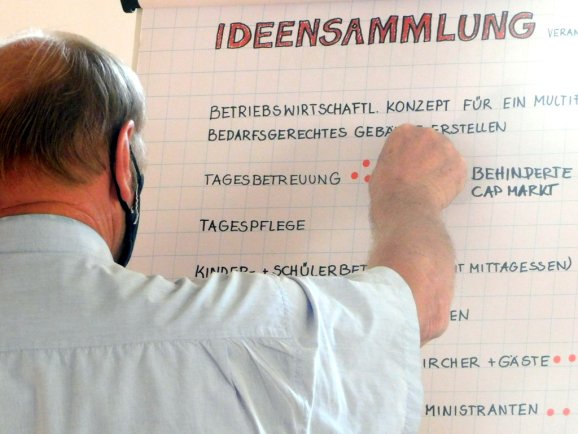 IDEENSAMMLUNG
BETRIEBSWIRTSCHAFTL. KONZEPT FÜR EIN
BEDARFSGERECHTES ERSTELLEN
TAGESBETREUUNG
BEHINDERTE
CAP MARKT
TAGESPFLEGE
KINDER- + MITTAGESSEN)
+ GÄSTE
MINISTRANTEN